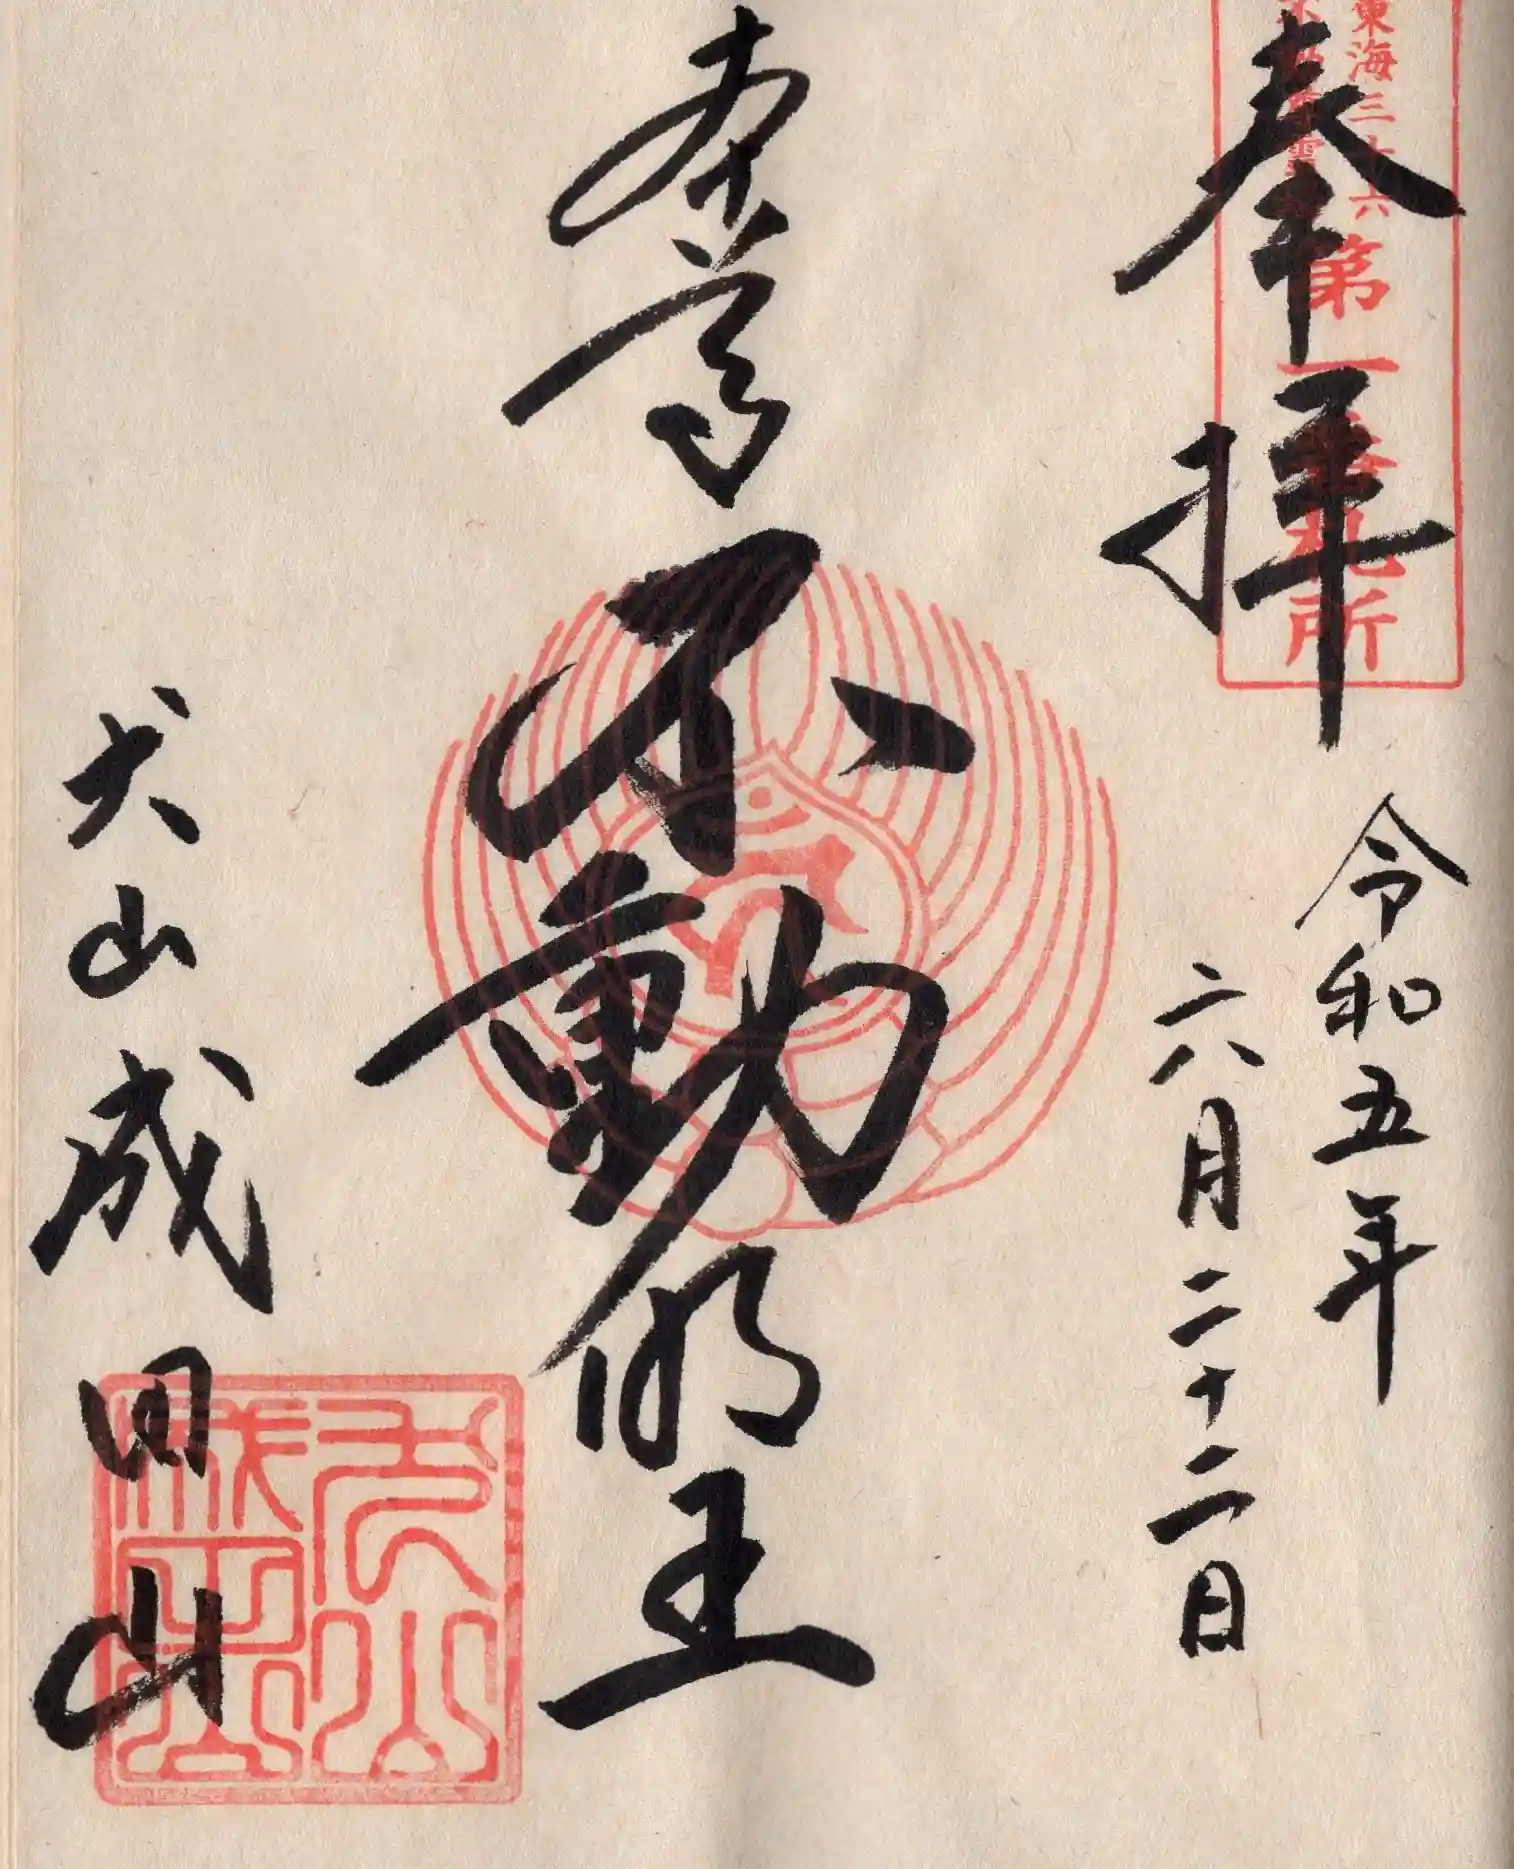 奉拝
東海三十六
不動尊霊
第一番札所
令和五年
六月二十二日
本尊不動明王
犬山成田山